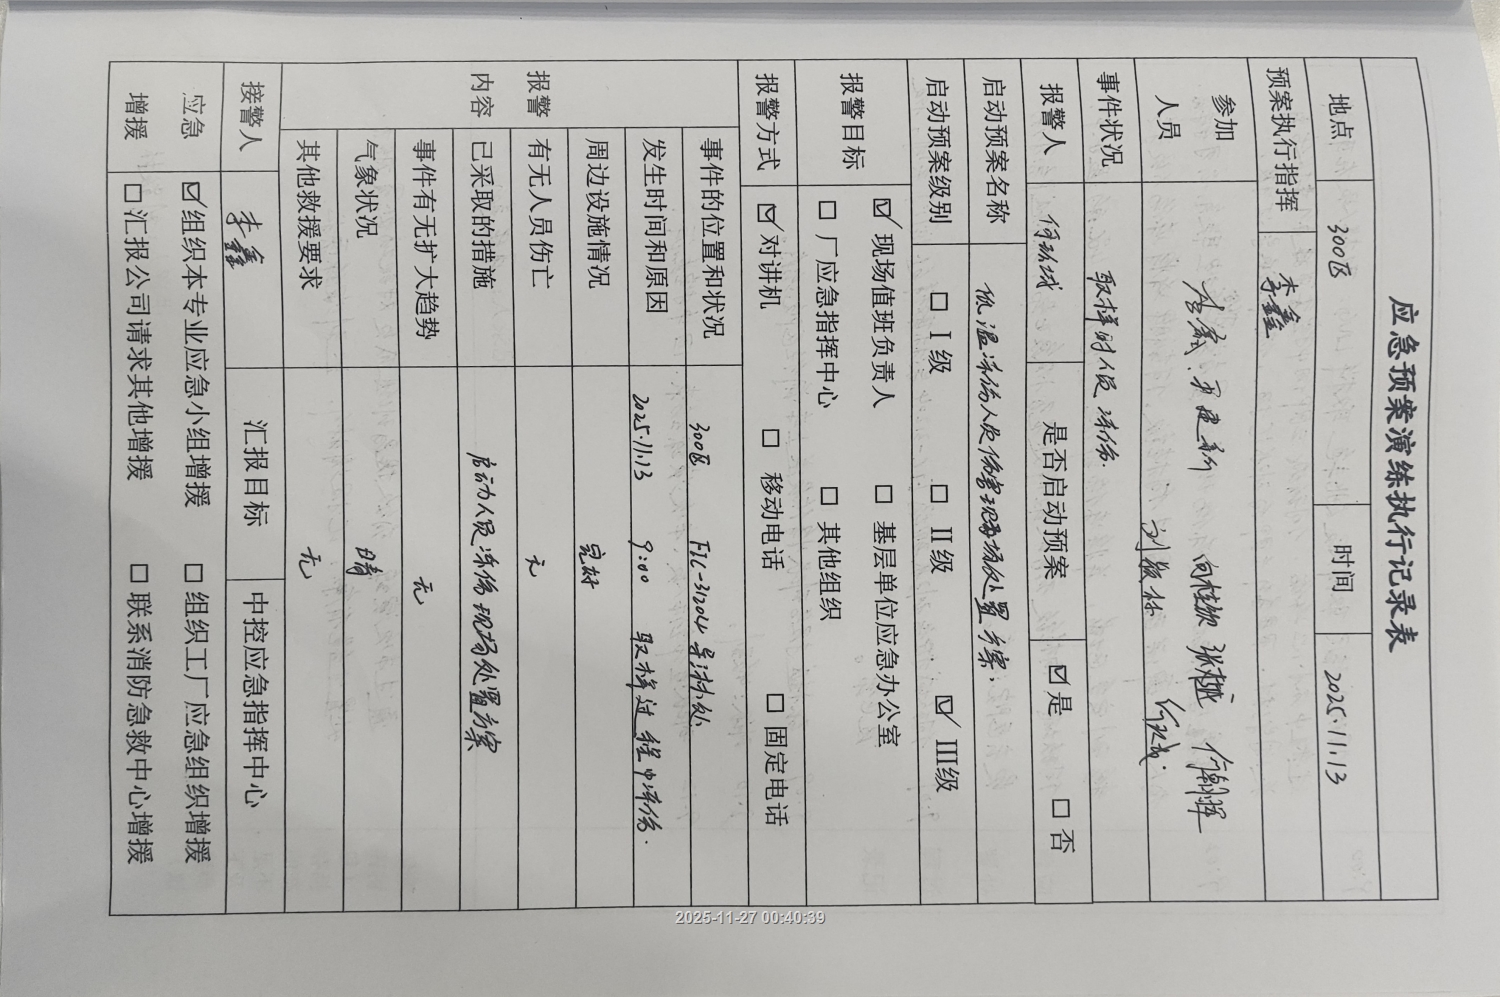 应急预案演练执行记录表
地点 300区 时间 2025.11.13
预案执行指挥 李鑫
参加人员 向桂钦 张樾 何朝晖
事件状况 取样时人员冻伤.
报警人 是否启动预案 ☑是 □否
启动预案名称 低温冻伤人员伤害现场处置方案.
启动预案级别 □ I级 □ II级 ☑ III级
报警目标 ☑ 现场值班负责人 □ 基层单位应急办公室
□ 厂应急指挥中心 □ 其他组织
报警方式 ☑ 对讲机 □ 移动电话 □ 固定电话
报警内容
事件的位置和状况 300区 FIC-31204 导淋处
发生时间和原因 2025.11.13 9:00 取样过程中冻伤.
周边设施情况 完好
有无人员伤亡 无
已采取的措施 启动人员冻伤现场处置方案
事件有无扩大趋势 无
气象状况 晴
其他救援要求 无
接警人 李鑫 汇报目标 中控应急指挥中心
应急增援 ☑组织本专业应急小组增援 □ 组织工厂应急组织增援
□汇报公司请求其他增援 □ 联系消防急救中心增援
2025-11-27 00:40:39